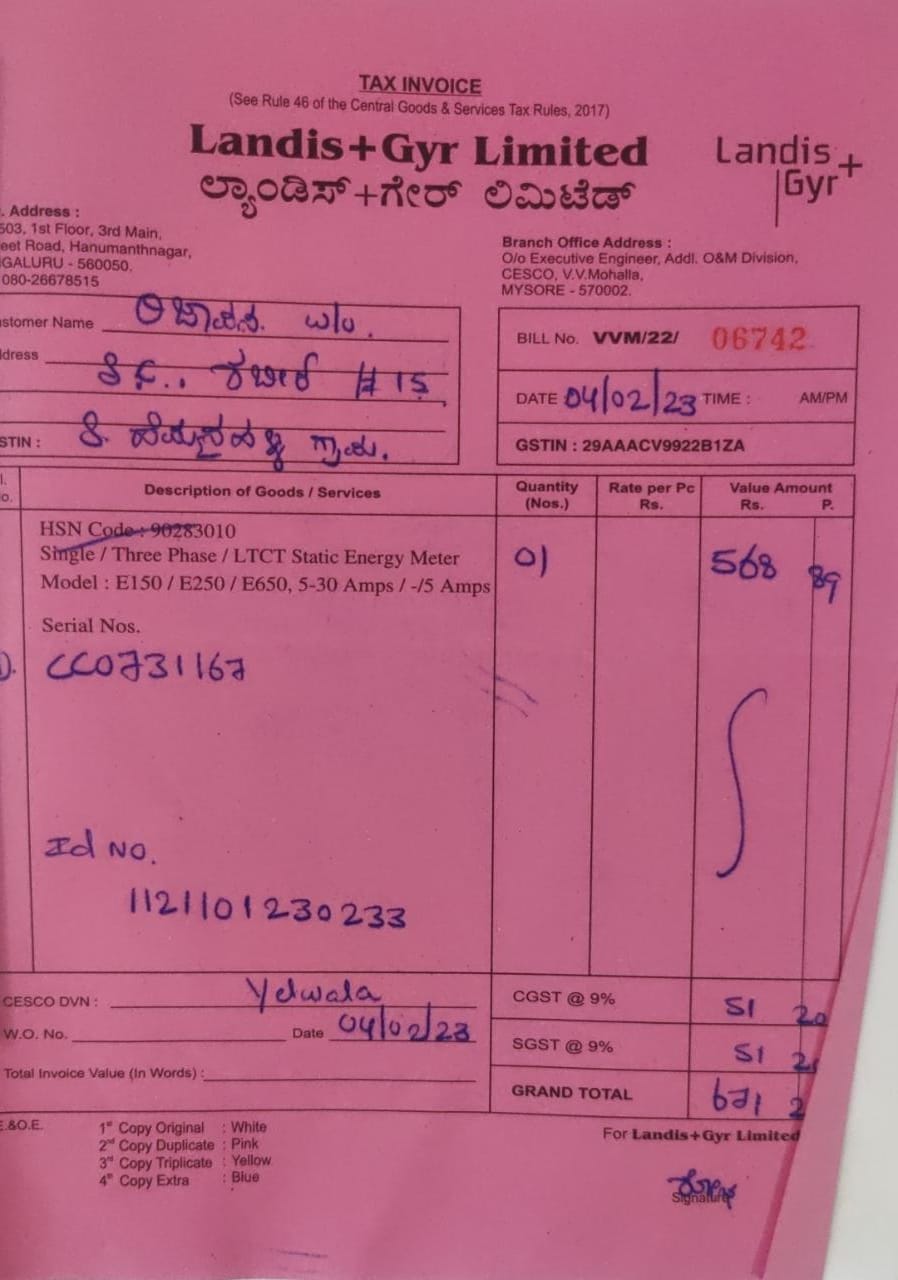 TAX INVOICE
(See Rule 46 of the Central Goods & Services Tax Rules, 2017)
Landis+Gyr Limited
Landis+
Gyr
ಲ್ಯಾಂಡಿಸ್+ಗೇರ್ ಲಿಮಿಟೆಡ್
. Address :
503, 1st Floor, 3rd Main,
eet Road, Hanumanthnagar,
GALURU - 560050.
080-26678515
Branch Office Address :
O/o Executive Engineer, Addl. O&M Division,
CESCO, V.V.Mohalla,
MYSORE - 570002.
stomer Name
dress # 15
STIN :
BILL No. VVM/22/ 06742
DATE 04/02/23 TIME : AM/PM
GSTIN : 29AAACV9922B1ZA
l.
o. Description of Goods / Services Quantity (Nos.) Rate per Pc Rs. Value Amount Rs. P.
HSN Code : 90283010
Single / Three Phase / LTCT Static Energy Meter 01 568 89
Model : E150 / E250 / E650, 5-30 Amps / -/5 Amps
Serial Nos.
). CC0731167
Id No.
1121101230233
CESCO DVN : Yelwala
W.O. No. Date 04/02/23
Total Invoice Value (In Words) :
CGST @ 9% 51 20
SGST @ 9% 51 2
GRAND TOTAL 671 2
E.&O.E.
1st Copy Original : White
2nd Copy Duplicate : Pink
3rd Copy Triplicate : Yellow
4th Copy Extra : Blue
For Landis+Gyr Limited
Signature